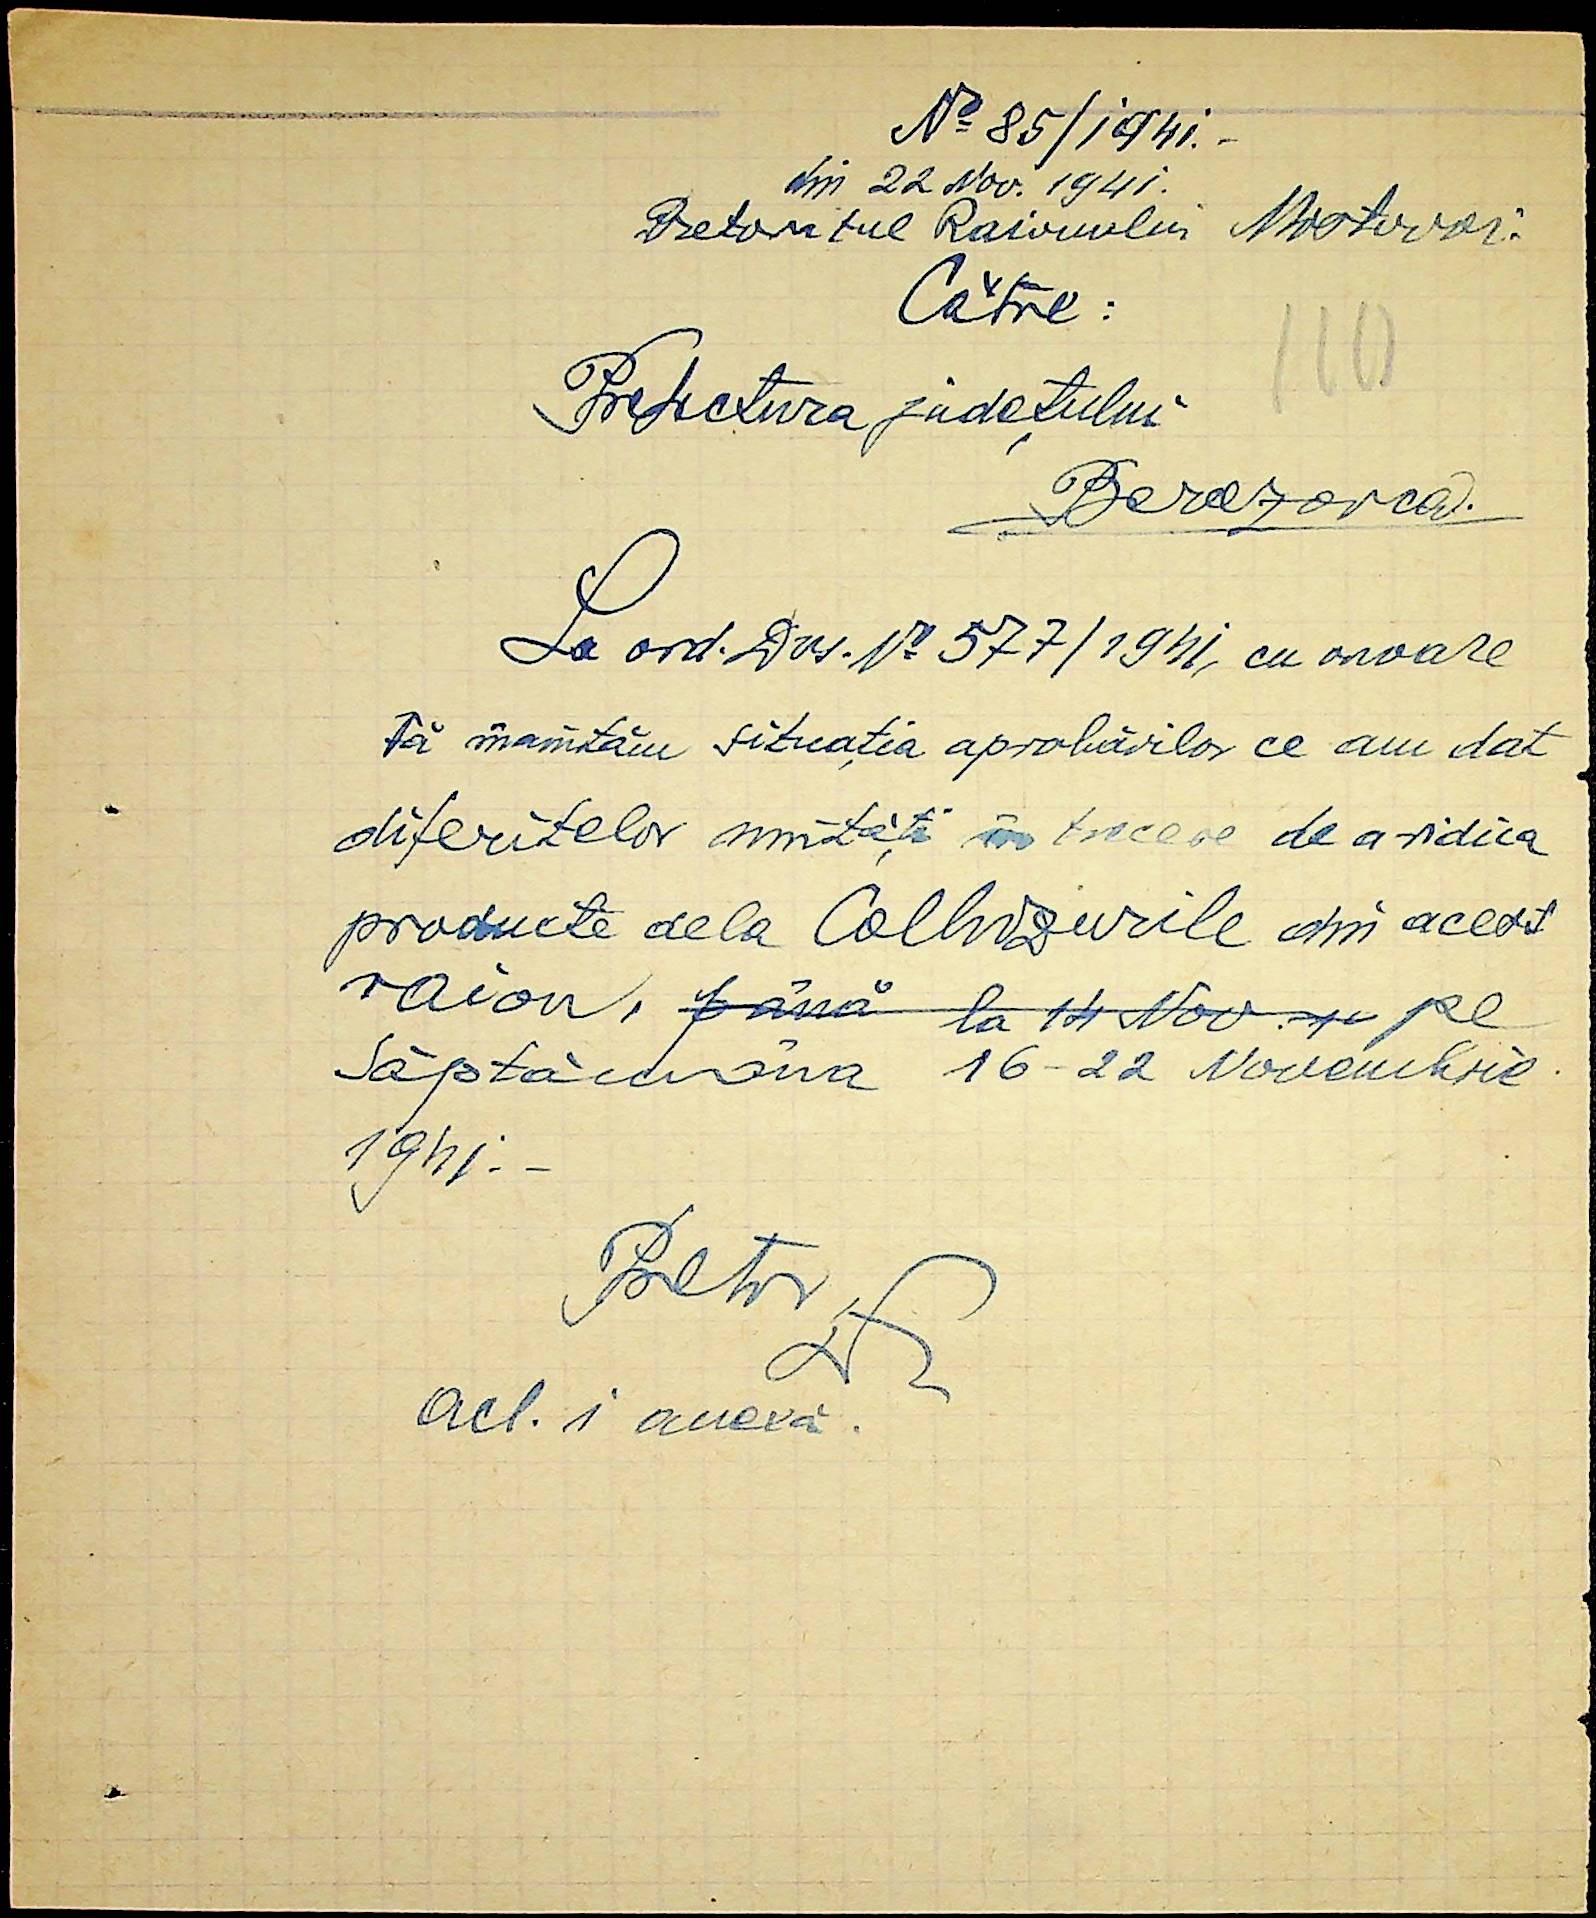 Nº 85/1941.-
din 22 Nov. 1941.
Pretoratul Raionului Mostovoi.
Către:
110
Prefectura județului
Berezovca.
La ord. Dvs. Nº 577/1941, cu onoare
Vă inaintăm situația aprobărilor ce am dat
diferitelor unități în trecere de a ridica
producte dela Colhozurile din acest
raion, până la 14 Nov. pe
Săptămâna 16-22 Novembrie
1941.-
Pretor
Acl. 1 anexă.